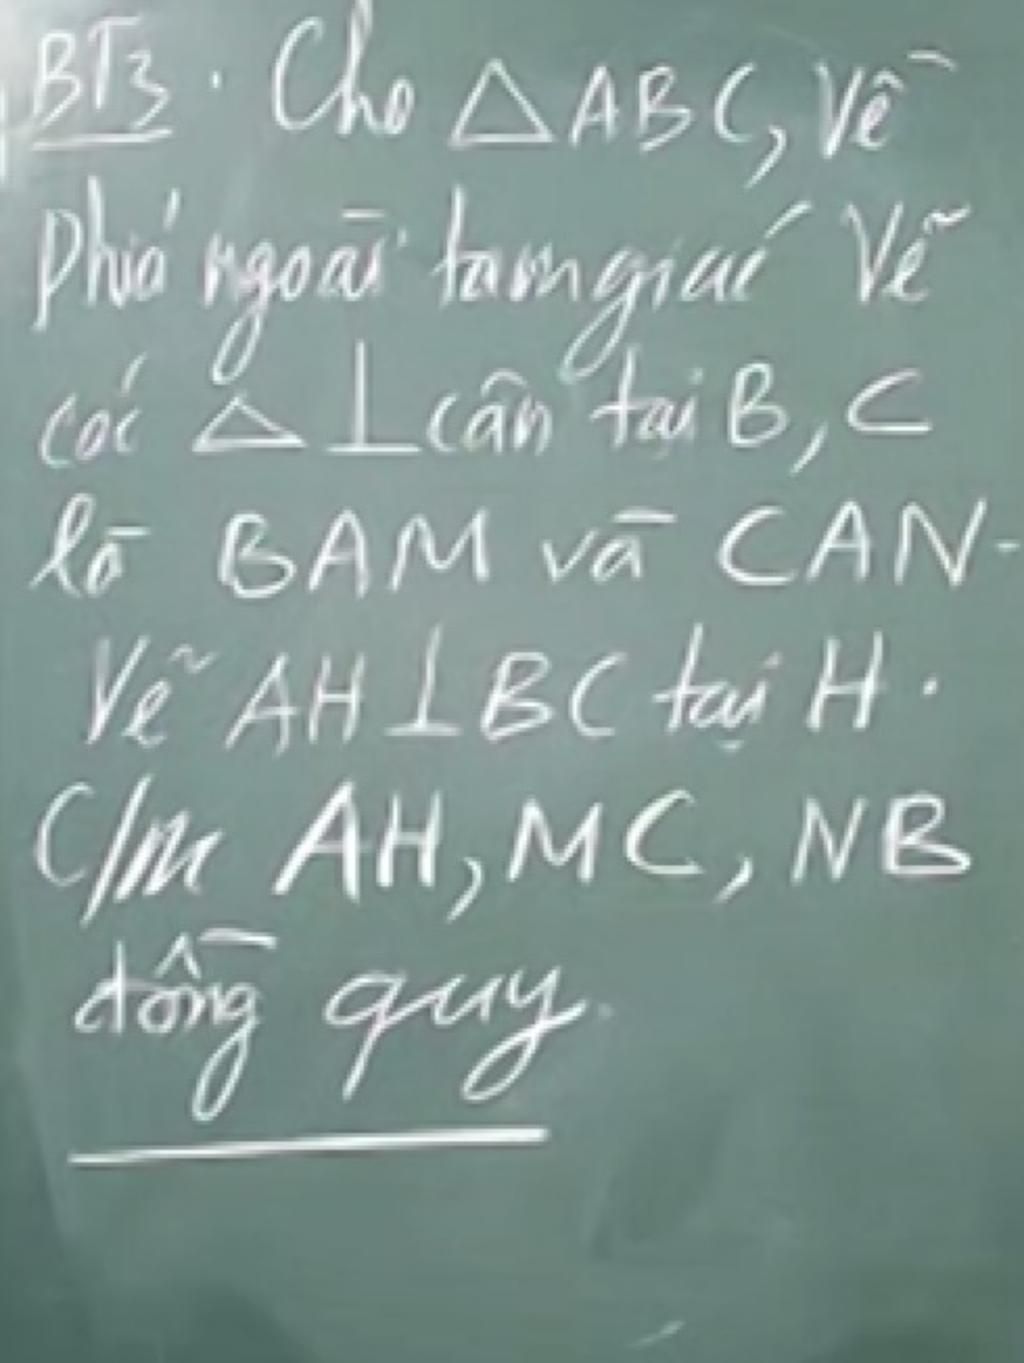 BT3. Cho △ABC, Về
phía ngoài tam giác Vẽ
các △⊥cân tại B, C
là BAM và CAN.
Vẽ AH⊥BC tại H.
C/m AH, MC, NB
đồng quy.